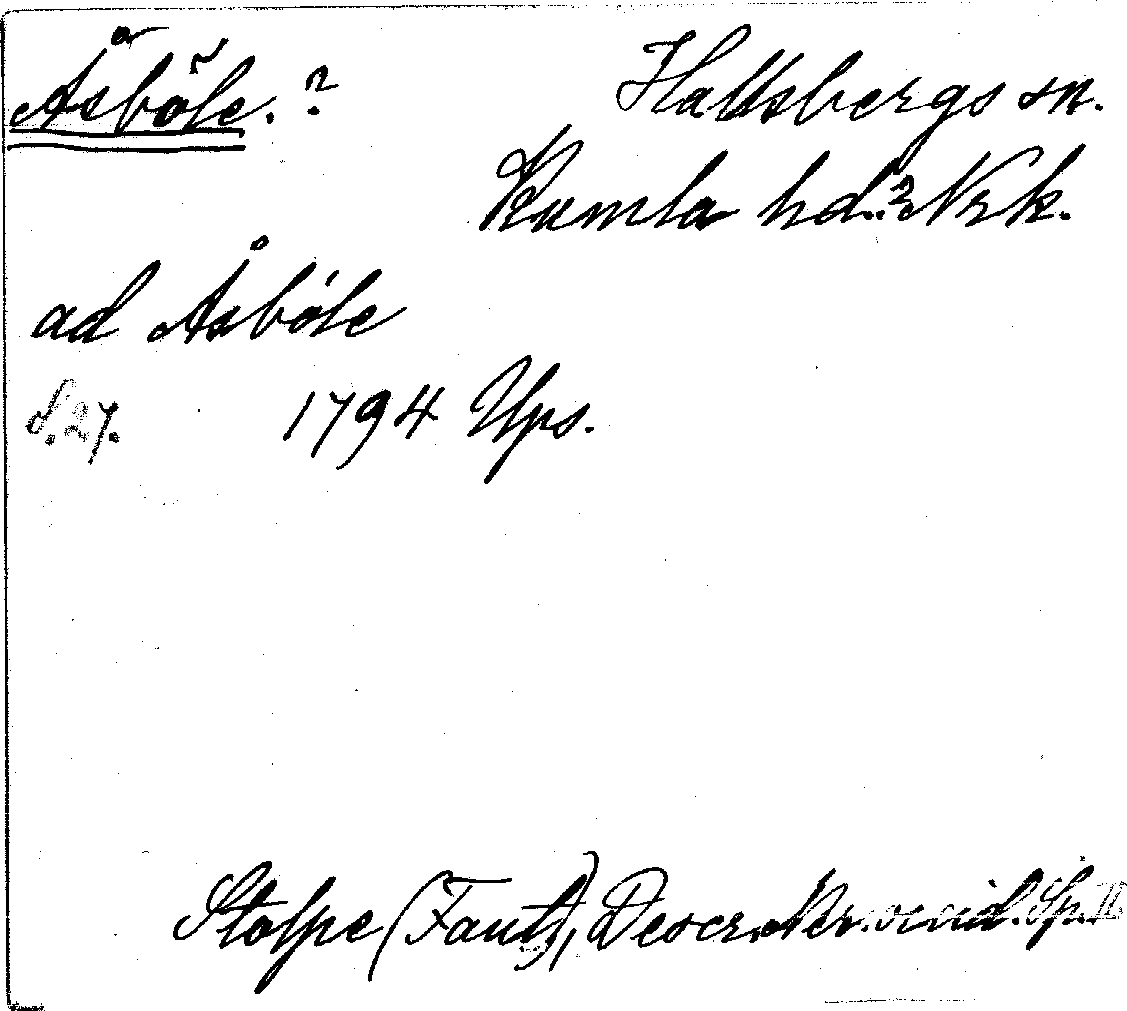 Åsböle. ? Hallsbergs sn.
Kumla hd.? Nrk.
ad Åsböle
S. 27. 1794 Ups.
Stolpe (Fant), Descr. Ner. occid. Sp. II.